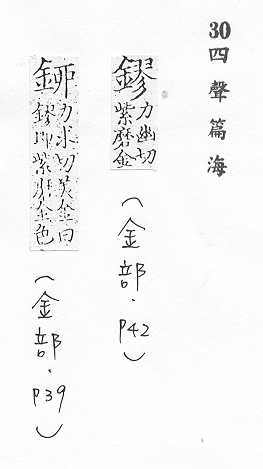 30四聲篇海
鏐 力幽切
紫磨金
(金部．P42)
力求切美金曰
鏐即紫磨金色
(金部．P39)